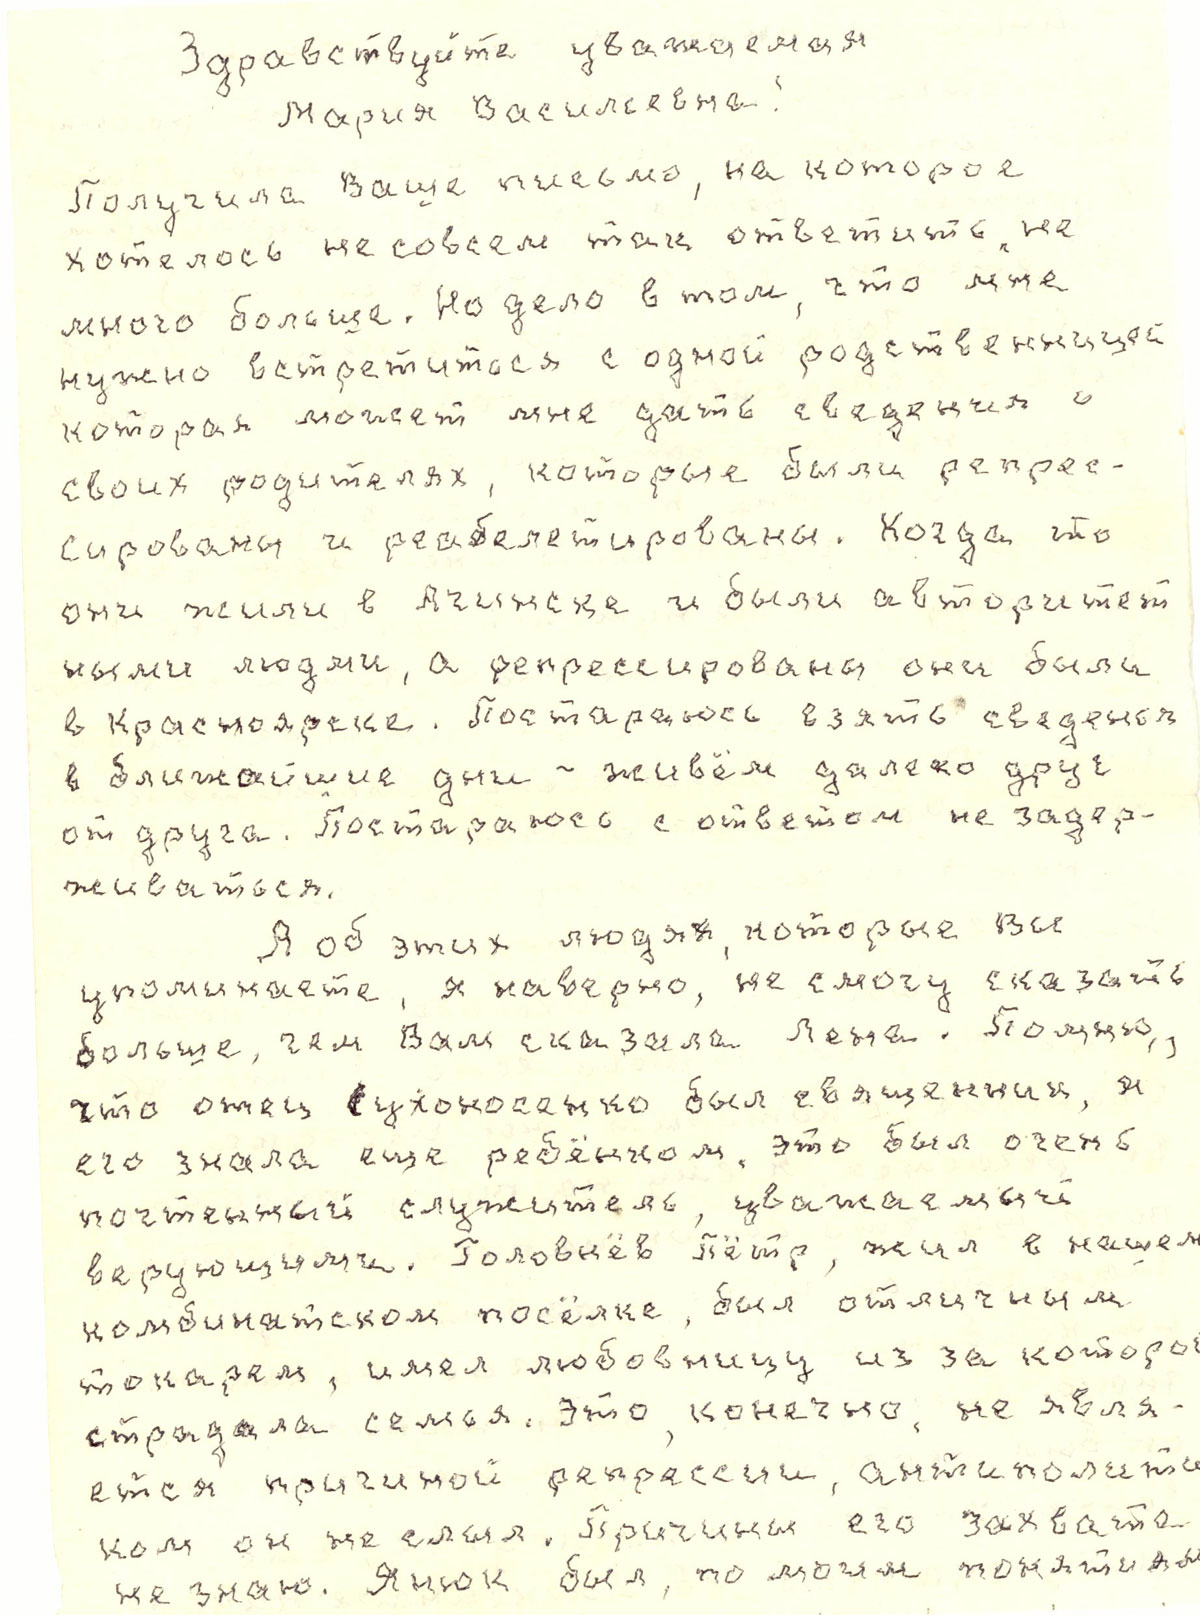 Здравствуйте уважаемая
Мария Васильевна!
Получила Ваше письмо, на которое
хотелось не совсем так ответить, не
много больше. Но дело в том, что мне
нужно встретиться с одной родственницей
которая может мне дать сведения о
своих родителях, которые были репрес-
сированы и реабелетированы. Когда то
они жили в Ачинске и были авторитет
ными людми, а репрессированы они были
в Красноярске. Постараюсь взять сведенья
в ближайшие дни - живём далеко друг
от друга. Постараюсь с ответом не задер-
живаться.
А об этих людях, которые Вы
упоминаете, я наверно, не смогу сказать
больше, чем Вам сказала Лена. Помню,
что отец Сухоносенко был священник, я
его знала еще ребёнком. Это был очень
почтенный служитель, уважаемый
верующими. Головнёв Пётр, жил в нашем
комбинатском посёлке, был отличным
токарем, имел любовницу из за которой
страдала семья. Это, конечно, не явля-
ется причиной репрессии, антиполити
ком он не слыл. Причины его захвата
не знаю. Янюк был, по моим понятиям